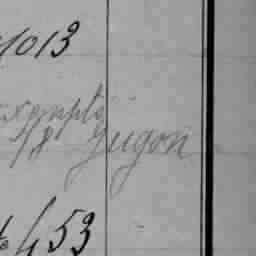 1013
exempté
18 Jugon
453